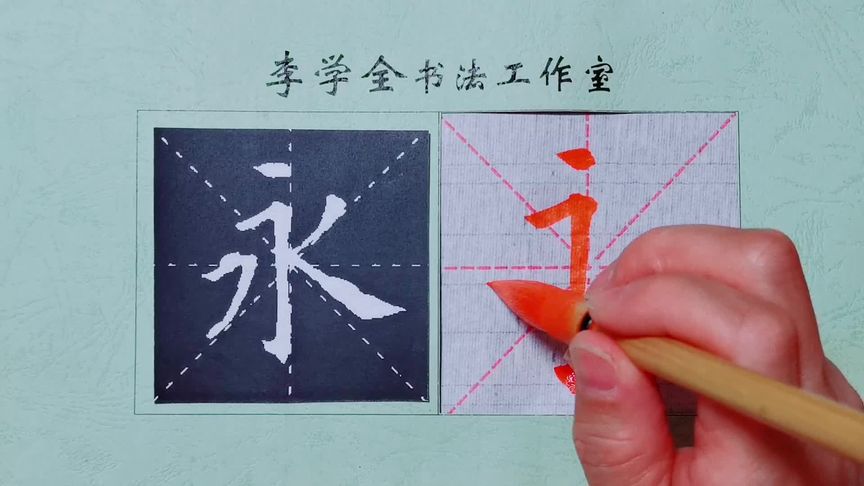 李学全书法工作室
永